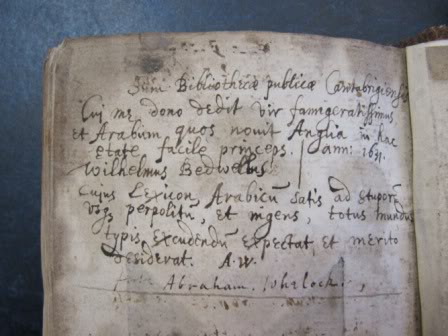 Sum Bibliothecæ publicæ Cantabrigiensis
Cui me dono dedit vir famigeratissimus
et Arabum, quos novit Anglia in hac
etate facile princeps. | ann: 1631.
Wilhelmus Bedwellus.
Cujus Lexicon Arabicū satis ad stuporē
usq₃ perpolitū, et ingens, totus mundus
typis excudendū expectat, et merito
desiderat. A. W.
Abraham. Whelock.